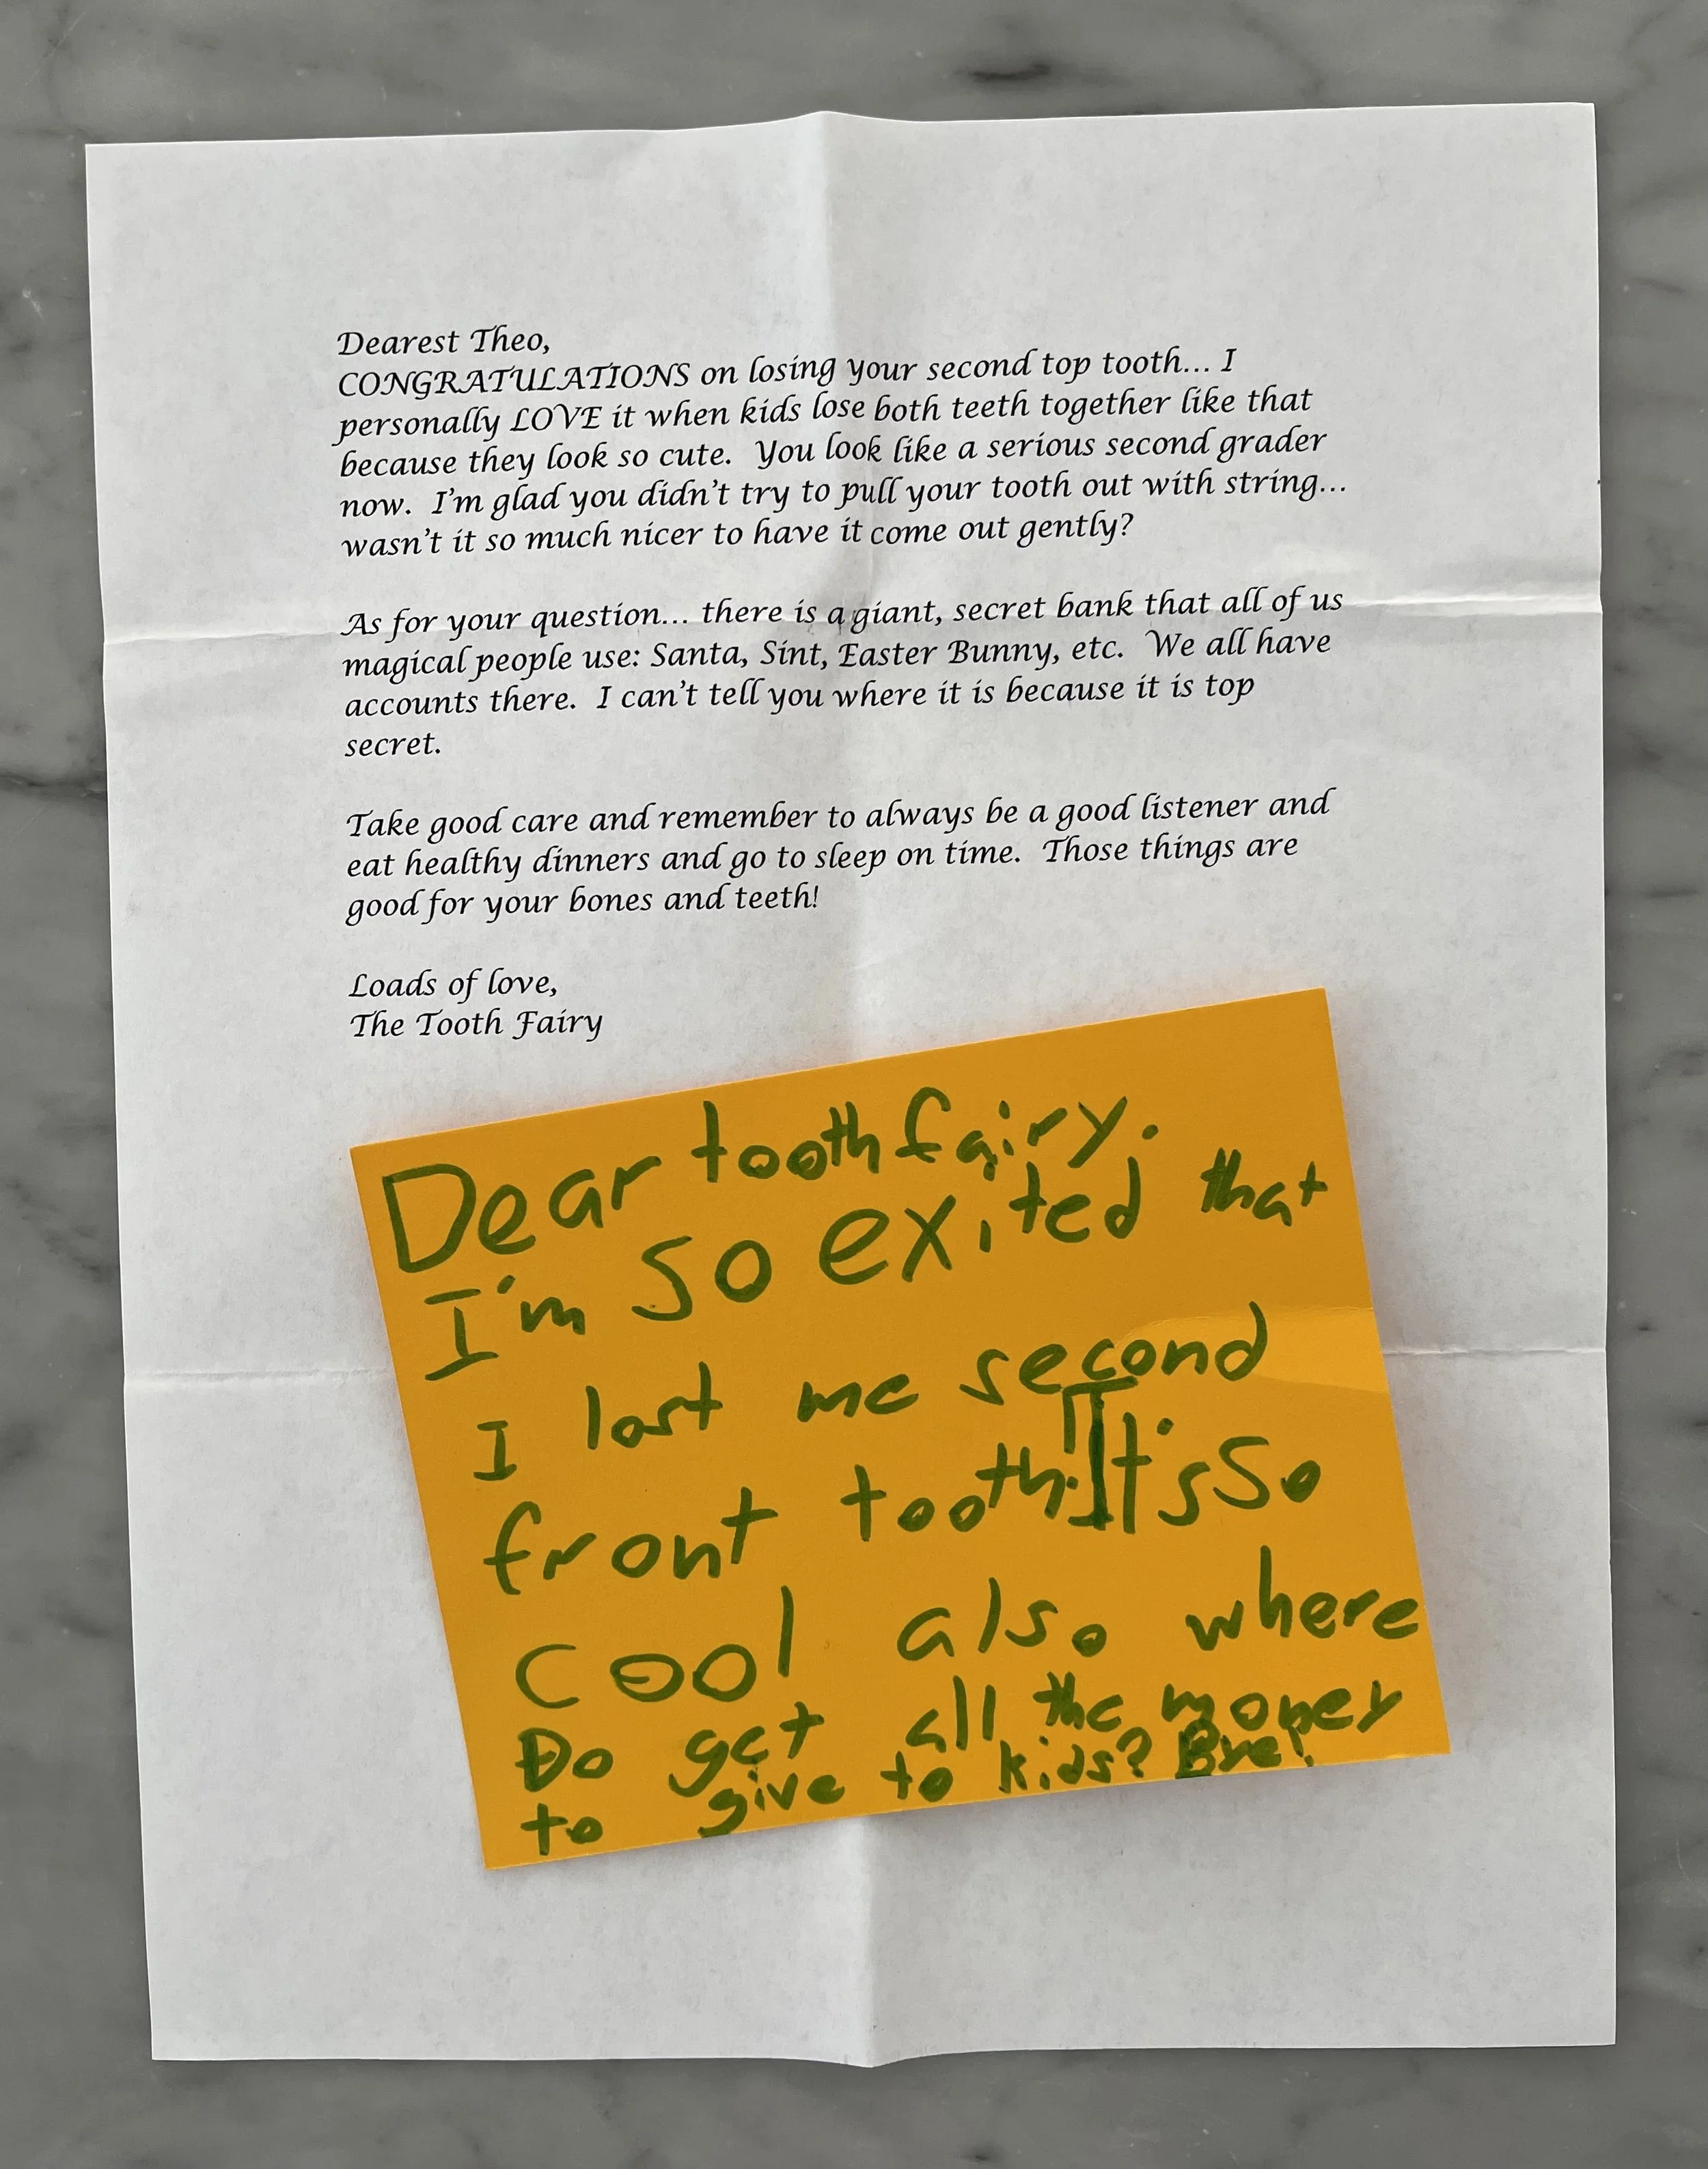 Dearest Theo,
CONGRATULATIONS on losing your second top tooth... I
personally LOVE it when kids lose both teeth together like that
because they look so cute.  You look like a serious second grader
now.  I'm glad you didn't try to pull your tooth out with string...
wasn't it so much nicer to have it come out gently?

As for your question... there is a giant, secret bank that all of us
magical people use: Santa, Sint, Easter Bunny, etc.  We all have
accounts there.  I can't tell you where it is because it is top
secret.

Take good care and remember to always be a good listener and
eat healthy dinners and go to sleep on time.  Those things are
good for your bones and teeth!

Loads of love,
The Tooth Fairy

Dear tooth fairy.
I'm so exited that
I lost me second
front tooth. It's so
cool also where
Do get all the money
to give to kids? Bye!